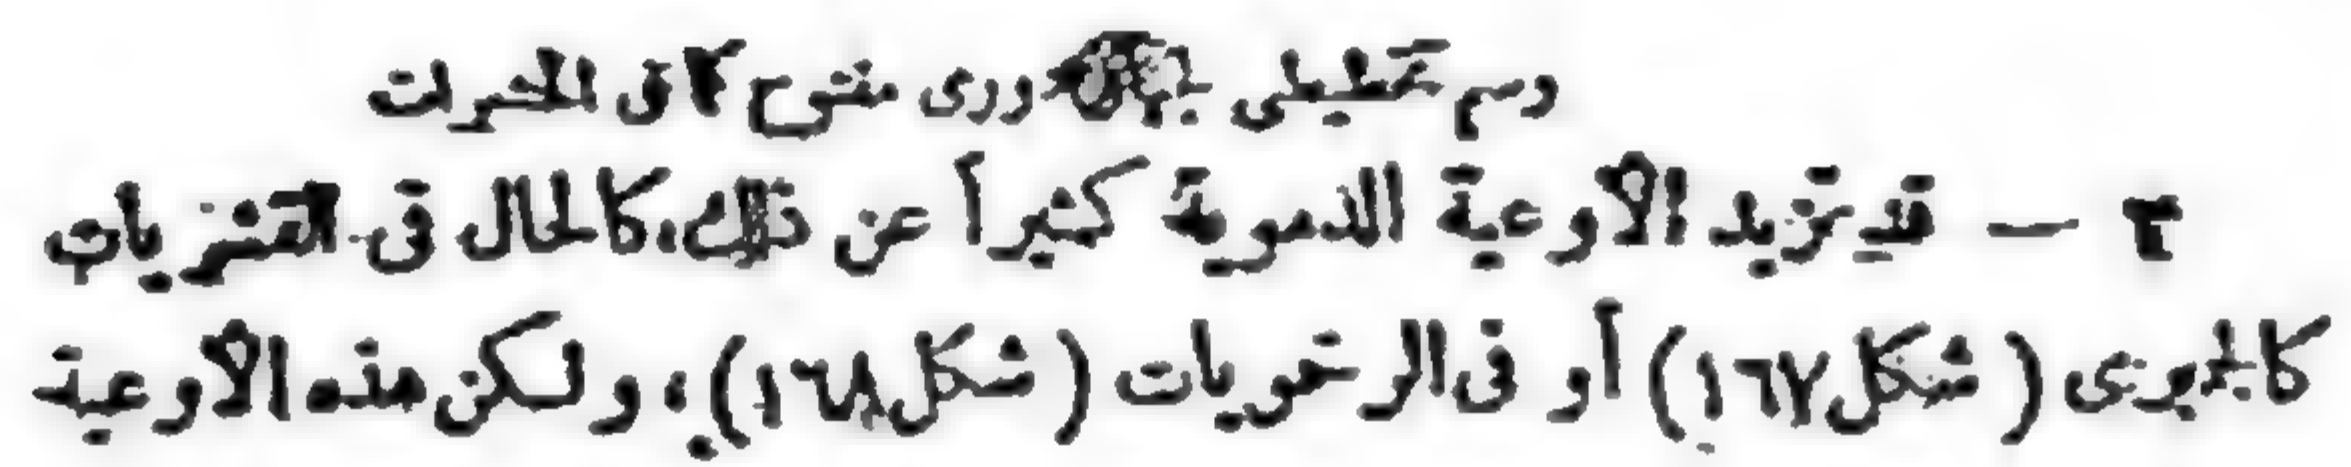 رسم تخطيطى لجهاز دورى مفتوح كما فى الحشرات
٢ — قد تزيد الأوعية الدموية كثيراً عن ذلك، كالحال فى القشريات
كالجمبرى ( شكل ١٦٧ ) أو فى الرخويات ( شكل ١٦٨ ) ، ولكن هذه الأوعية